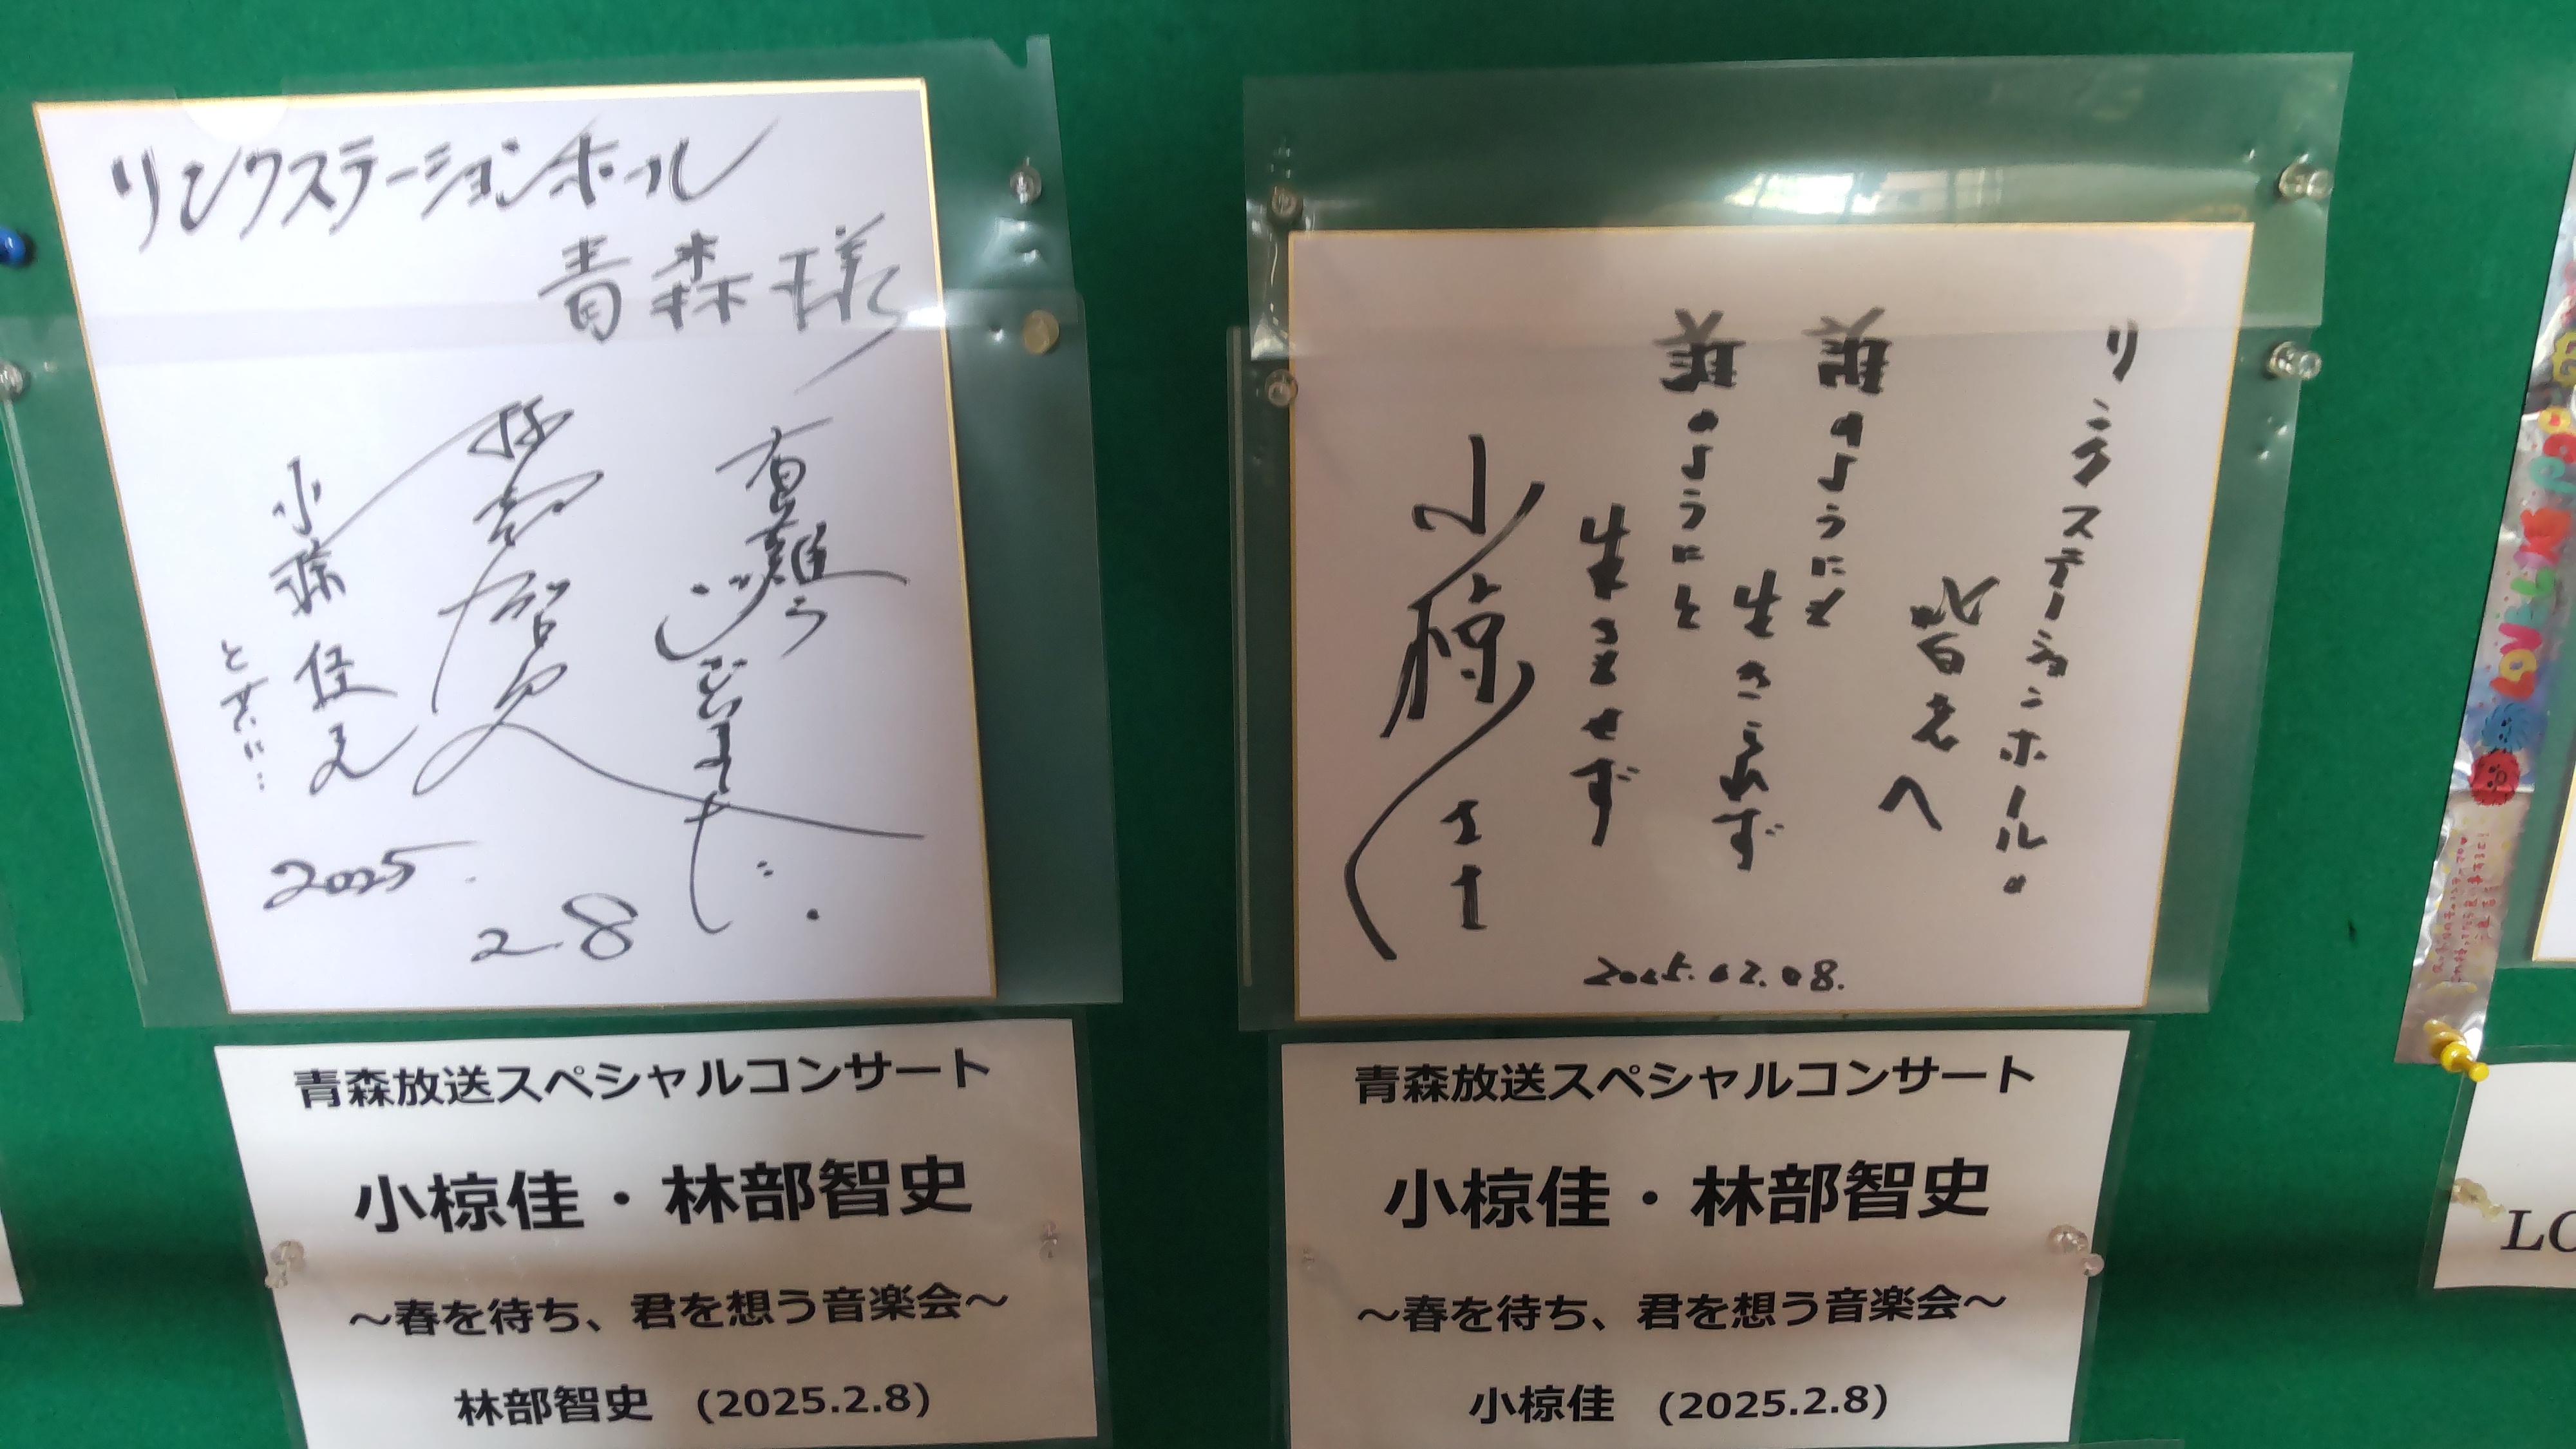 リンクステーションホール
青森様
有難う
ございました
林部智史
小椋佳さん
と共に…
2025.
2.8
リンクステーションホールの
皆さんへ
誰のようにも
生きられず
誰のようにと
生きもせず
小椋佳
2025.02.08.
青森放送スペシャルコンサート
小椋佳・林部智史
～春を待ち、君を想う音楽会～
林部智史 (2025.2.8)
青森放送スペシャルコンサート
小椋佳・林部智史
～春を待ち、君を想う音楽会～
小椋佳 (2025.2.8)